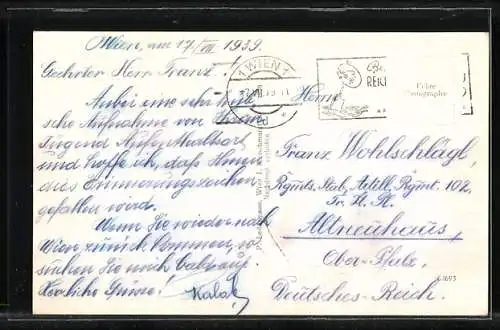 Wien, am 17/VII 1939.
Geehrter Herr Franz!
Anbei eine sehr
sche Aufnahme von
Jugend Aufenthaltsort
und hoffe ich, daß Ihnen
dies Erinnerungszeichen
gefallen wird.
Wenn Sie wieder nach
Wien zurück kommen,
suchen Sie mich bald auf.
Herzliche Grüsse!
1 WIEN 1
REICH
Echte
Photographie
Herrn
Franz Wohlschlägl,
Rgmts. Stab, Artill. Rgmt. 102,
Altneuhaus,
Ober-Pfalz,
Deutsches-Reich.